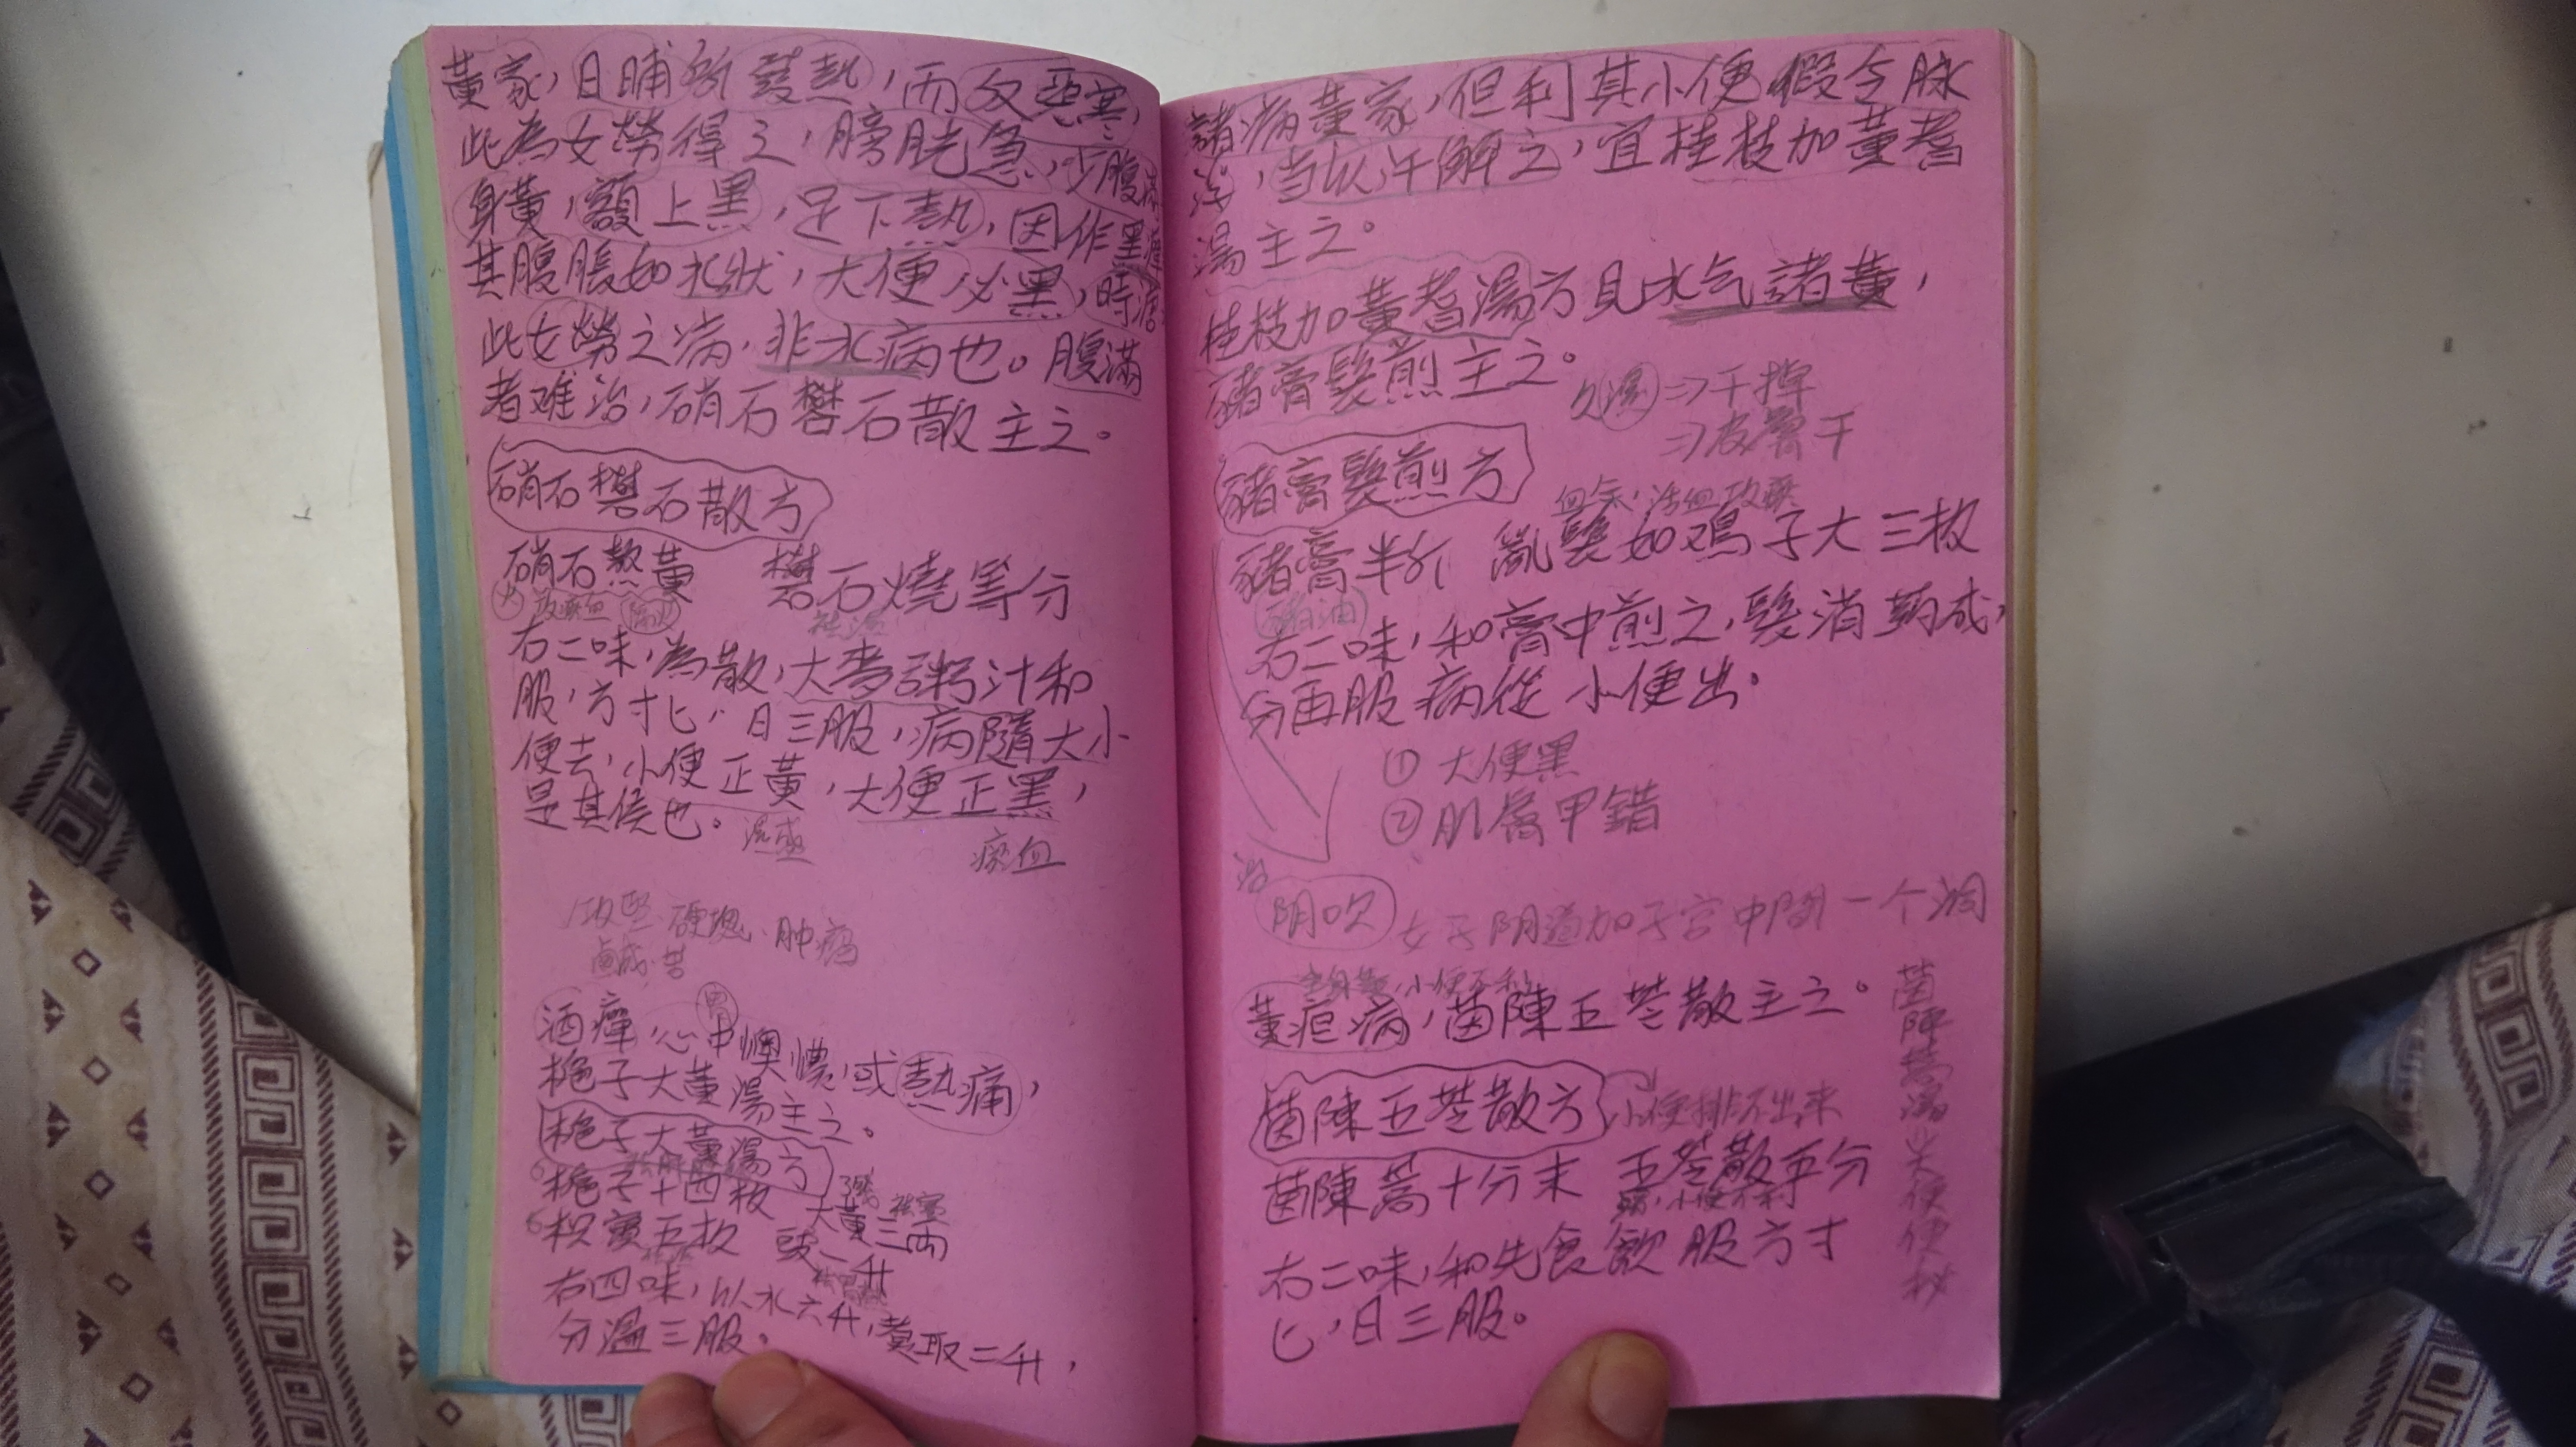 黃家，日晡所發熱，而反惡寒，
此為女勞得之，膀胱急，少腹滿
身黃，額上黑，足下熱，因作黑疸
其腹脹如水狀，大便必黑，時溏
此女勞之病，非水病也。腹滿
者难治，硝石礬石散主之。
硝石礬石散方
硝石熬黃　礬石燒等分
火 攻瘀血
祛濕
右二味，為散，大麥粥汁和
服，方寸匕，日三服，病隨大小
便去，小便正黃，大便正黑，
是其侯也。
瘀血
攻堅 硬塊、肿瘤
鹹、苦
胃
酒癉，心中懊憹，或熱痛，
梔子大黃湯主之。
梔子大黃湯方
梔子十四枚　大黃三兩
枳實五枚　豉一升
右四味，以水六升，煮取二升，
分溫三服。
諸病黃家，但利其小便 假令脉
浮，当以汗解之，宜桂枝加黃耆
湯主之。
桂枝加黃耆湯方見水气諸黃，
豬膏髮煎主之。
久濕⇒干掉
⇒皮膚干
豬膏髮煎方
血余，活血攻瘀
豬膏半斤　亂髮如鴻子大三枚
豬油
右二味，和膏中煎之，髮消药成，
分再服 病從小便出。
① 大便黑
② 肌膚甲錯
治
阴吹 女子阴道加子宫中間一个洞
全身黃，小便不利
黃疸病，茵陳五苓散主之。
茵陳五苓散方
小便排不出来
茵陳蒿十分末　五苓散五分
小便不利
右二味，和先食飲服方寸
匕，日三服。
茵陳蒿湯
大便
便秘